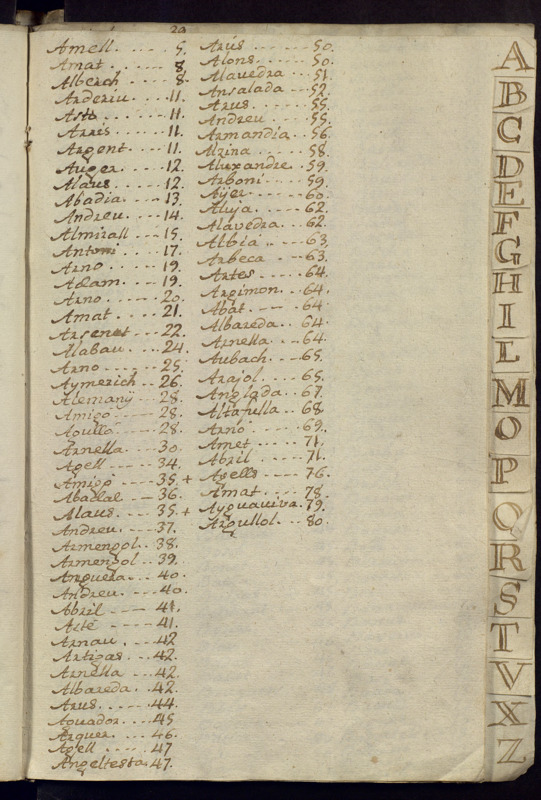 29
Amell. ---- 5.
Amat --- 8.
Alberch --- 8.
Arderiu. ---- 11.
Asts ---- 11.
Arris ---- 11.
Argent ---- 11.
Auger ---- 12.
Alaus ---- 12.
Abadia ---- 13.
Andreu ---- 14.
Almirall --- 15.
Antoni ---- 17.
Arno ---- 19.
Adam ---- 19.
Arno ---- 20.
Amat ---- 21.
Arsenet --- 22.
Alabau --- 24.
Arno ---- 25.
Aymerich -- 26.
Alemany --- 28.
Amigó ---- 28.
Agulló ---- 28.
Arnella --- 30.
Agell ---- 34.
Amigó ---- 35. +
Abadal -- 36.
Alaus ---- 35. +
Andreu. --- 37.
Armengol .. 38.
Armengol .. 39.
Anguera ... 40.
Andreu --- 40.
Abril ---- 41.
Asté ---- 41.
Arnau ---- 42
Artigas --- 42.
Arnella --- 42.
Albareda. 42.
Arus ----- 44.
Aguador ... 45
Arquer ... 46.
Agell ---- 47
Angeltesta 47.
Arús ---- 50.
Alons ---- 50.
Alavedra --- 51.
Ansalada -- 52.
Arus ---- 55.
Andreu --- 55.
Armandia .. 56.
Alzina --- 58.
Aluxandre . 59.
Arboni --- 59.
Ayer ---- 60.
Aluja. --- 62.
Alavedra -- 62.
Albia .. -- 63.
Arbeca .. - 63.
Artes ---- 64.
Argimon .. 64.
Abát -- 64
Albareda .. 64.
Arnella .. 64.
Aubach --- 65.
Arajol ---- 65.
Anglada -- 67.
Altafulla -- 68.
Arnó ---- 69.
Amet ---- 71.
Abril ---- 71.
Agells --- 76.
Amat ---- 78.
Ayguaviva. 79.
Argullol --- 80.
A
B
C
D
E
F
G
H
I
L
M
O
P
Q
R
S
T
V
X
Z